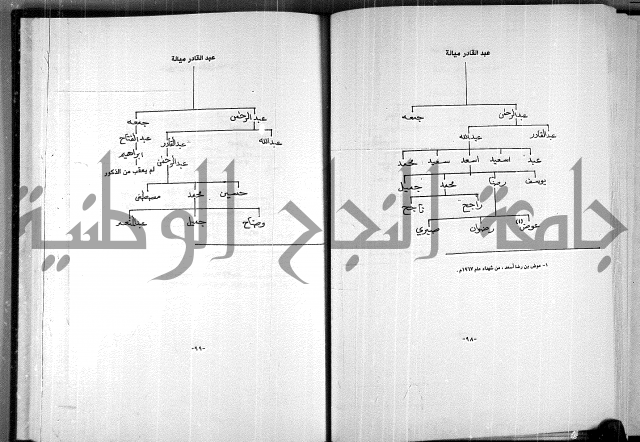 عبد القادر ميالة
عبدالرحمن جمعه
عبدالقادر عبدالله
عبد اسعيد اسعد سعيد محمد
يوسف رضا محمد جميل
راجح ناجح
عوض (١) رضوان صبري
١- عوض بن رضا أسعد ، من شهداء عام ١٩٦٧م.
-٩٨-
عبد القادر ميالة
عبدالرحمن جمعه
عبدالله عبدالقادر عبدالفتاح
عبدالرحمن ابراهيم
لم يعقب من الذكور
حسين محمد مصطفى
وضاح جميل عبدالمنعم
-٩٩-
جامعة النجاح الوطنية